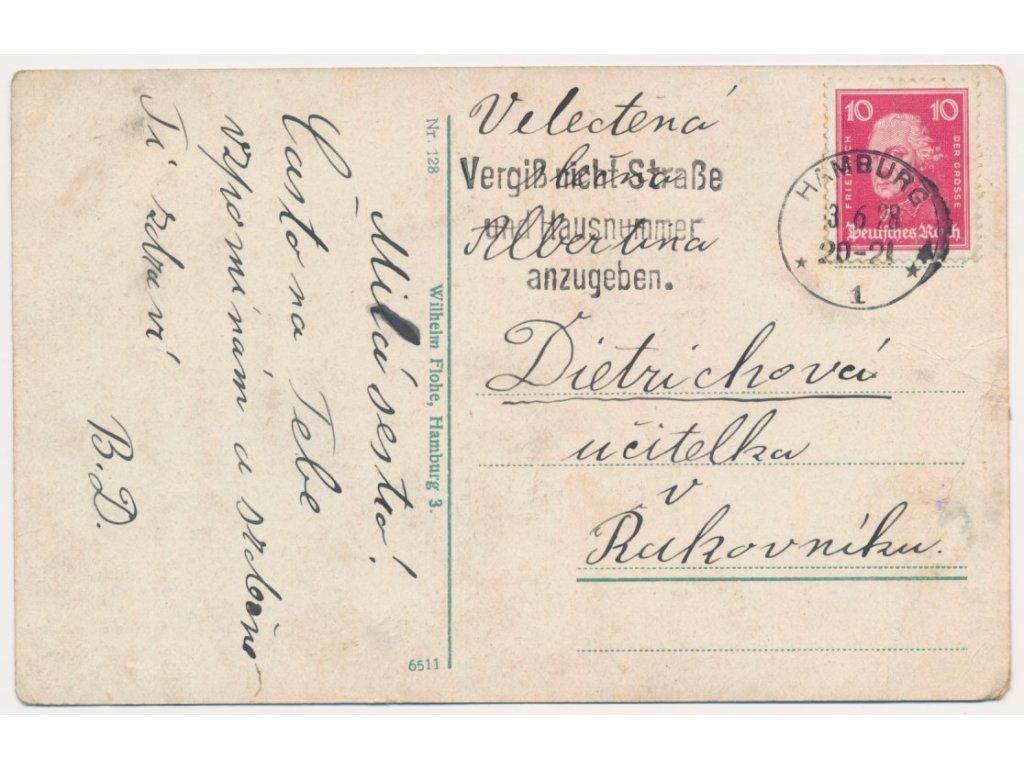 Milá sestro!
Často na Tebe
vzpomínám a srdečně
Ti zdraví
B. D.
Nr. 128
Wilhelm Flohe, Hamburg 3.
6511
Velectěná
slečna
Albertina
Dietrichová
učitelka
v
Rakovníku.
Vergiß nicht Straße
und Hausnummer
anzugeben.
10 10
FRIEDRICH DER GROSSE
Deutsches Reich
HAMBURG
3.6.28
20-21
* 1 *